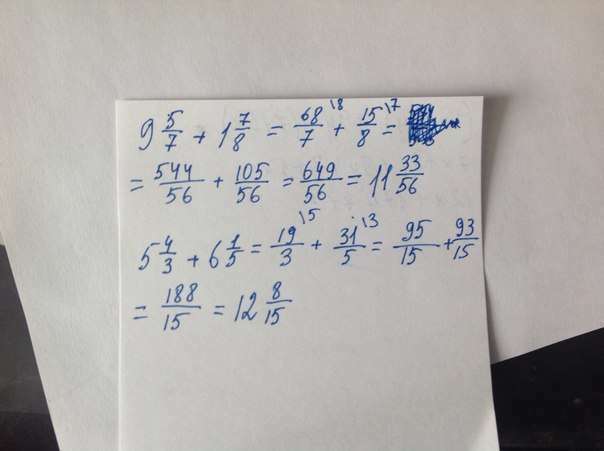 9 5/7 + 1 7/8 = 68/7 \8 + 15/8 \7 =
= 544/56 + 105/56 = 649/56 = 11 33/56
5 4/3 + 6 1/5 = 19/3 \5 + 31/5 \3 = 95/15 + 93/15
= 188/15 = 12 8/15